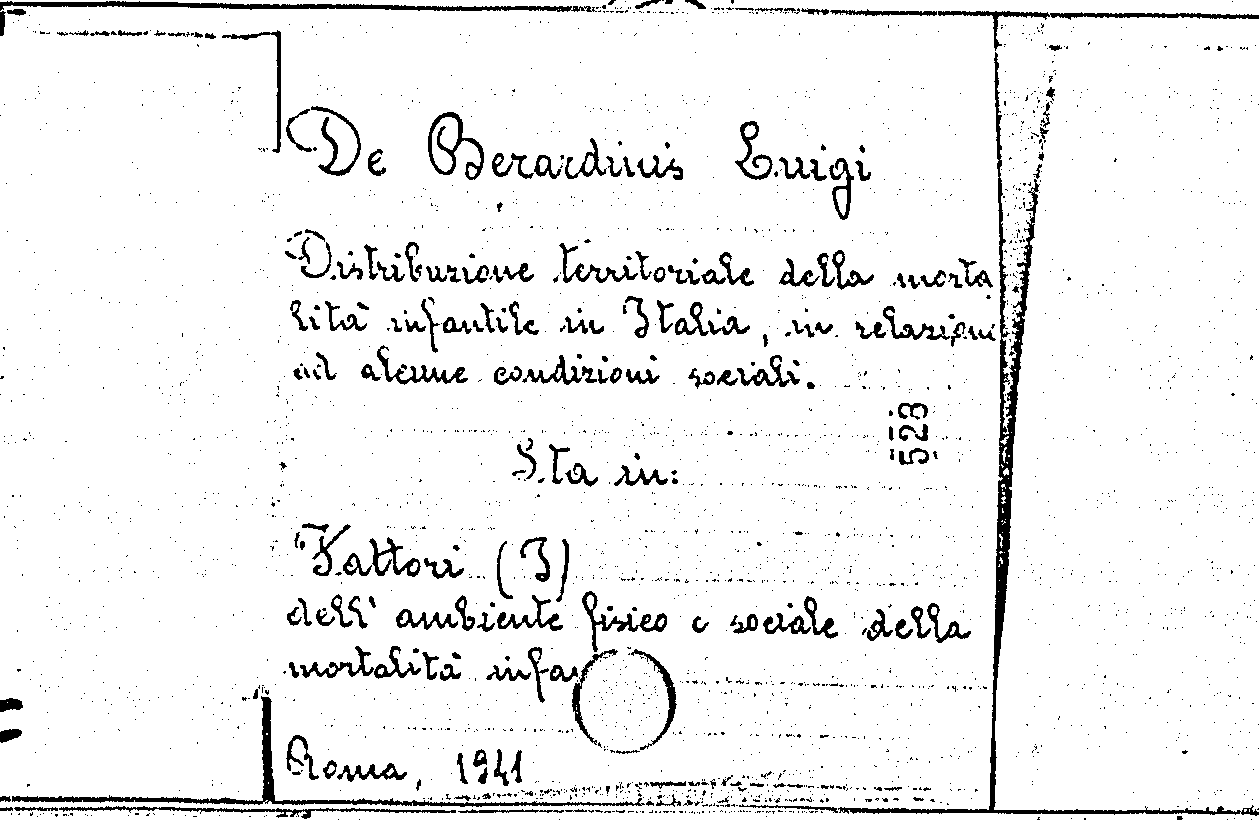 De Berardinis Luigi
Distribuzione territoriale della morta
lità infantile in Italia, in relazione
ad alcune condizioni sociali.
523
Sta in:
Fattori (I)
dell'ambiente fisico e sociale della
mortalità infan
Roma, 1941